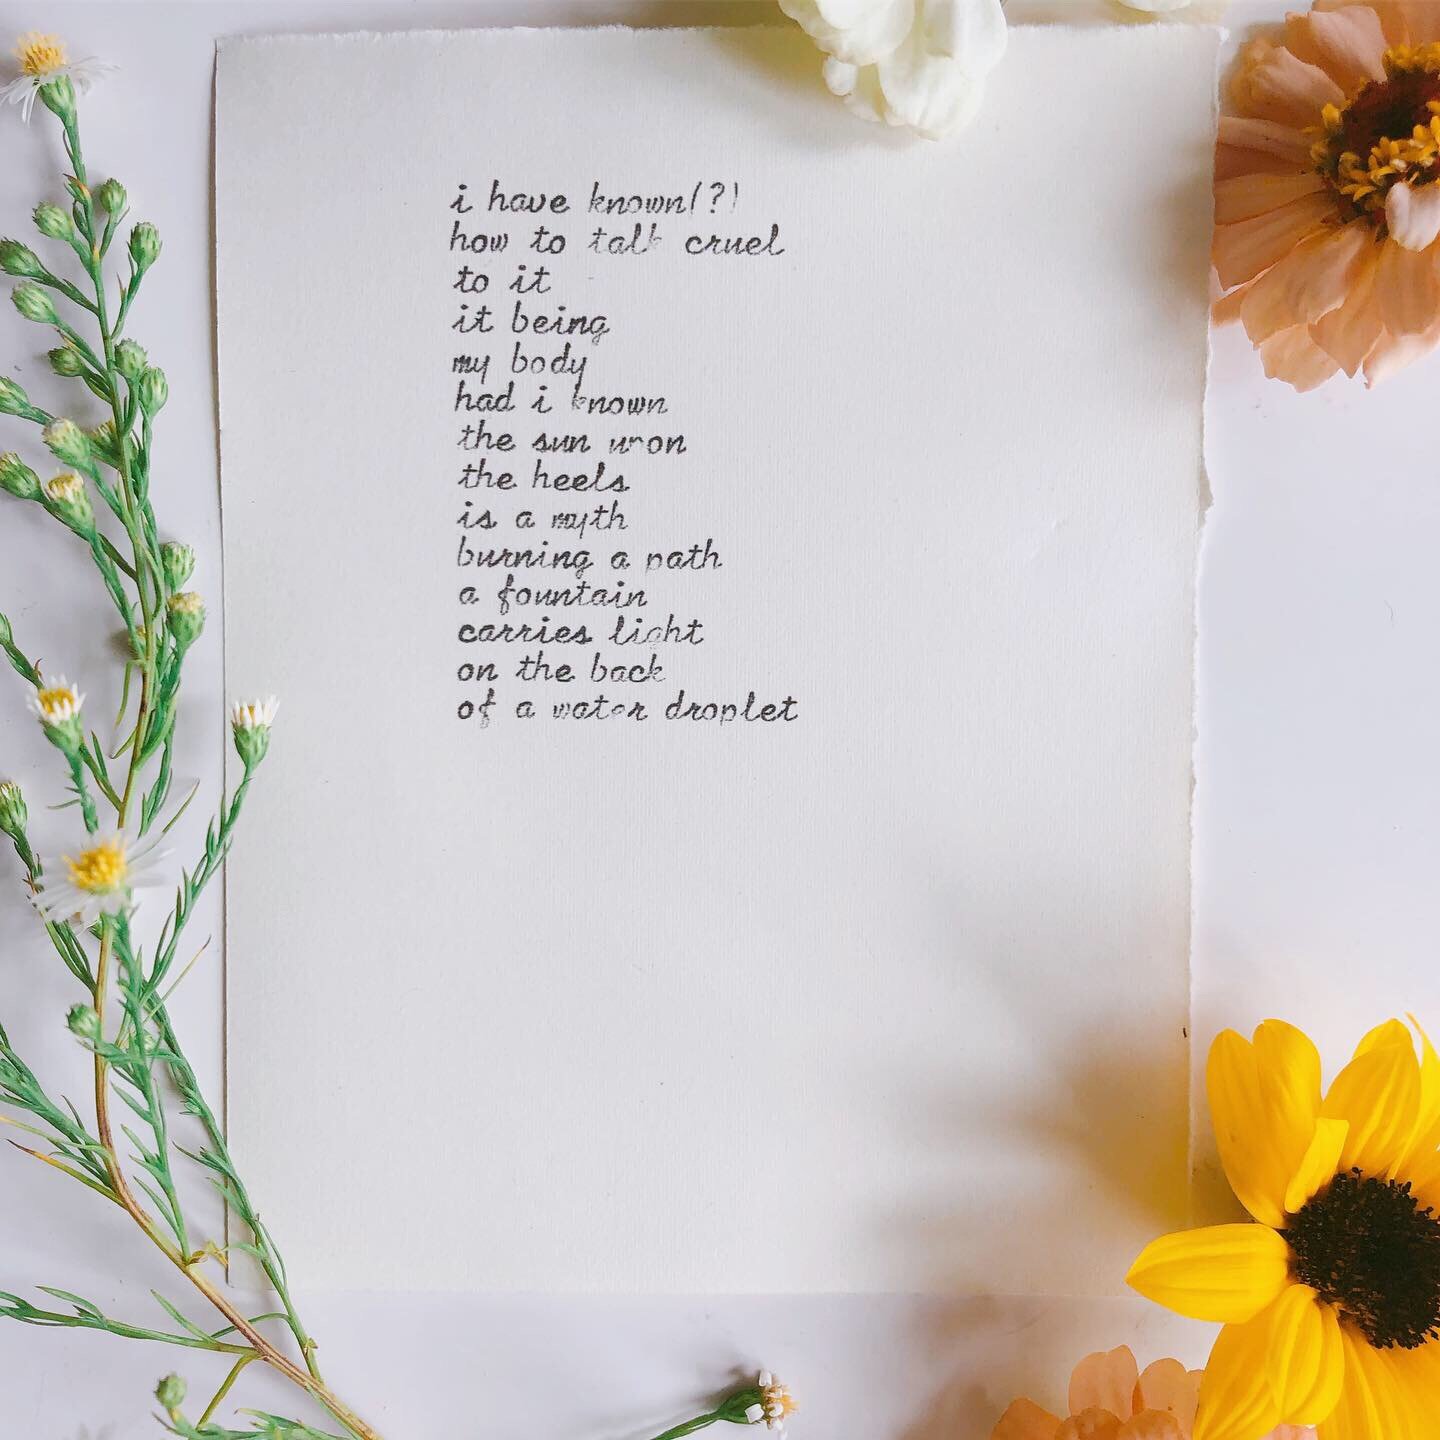 i have known(?)
how to talk cruel
to it
it being
my body
had i known
the sun upon
the heels
is a myth
burning a path
a fountain
carries light
on the back
of a water droplet